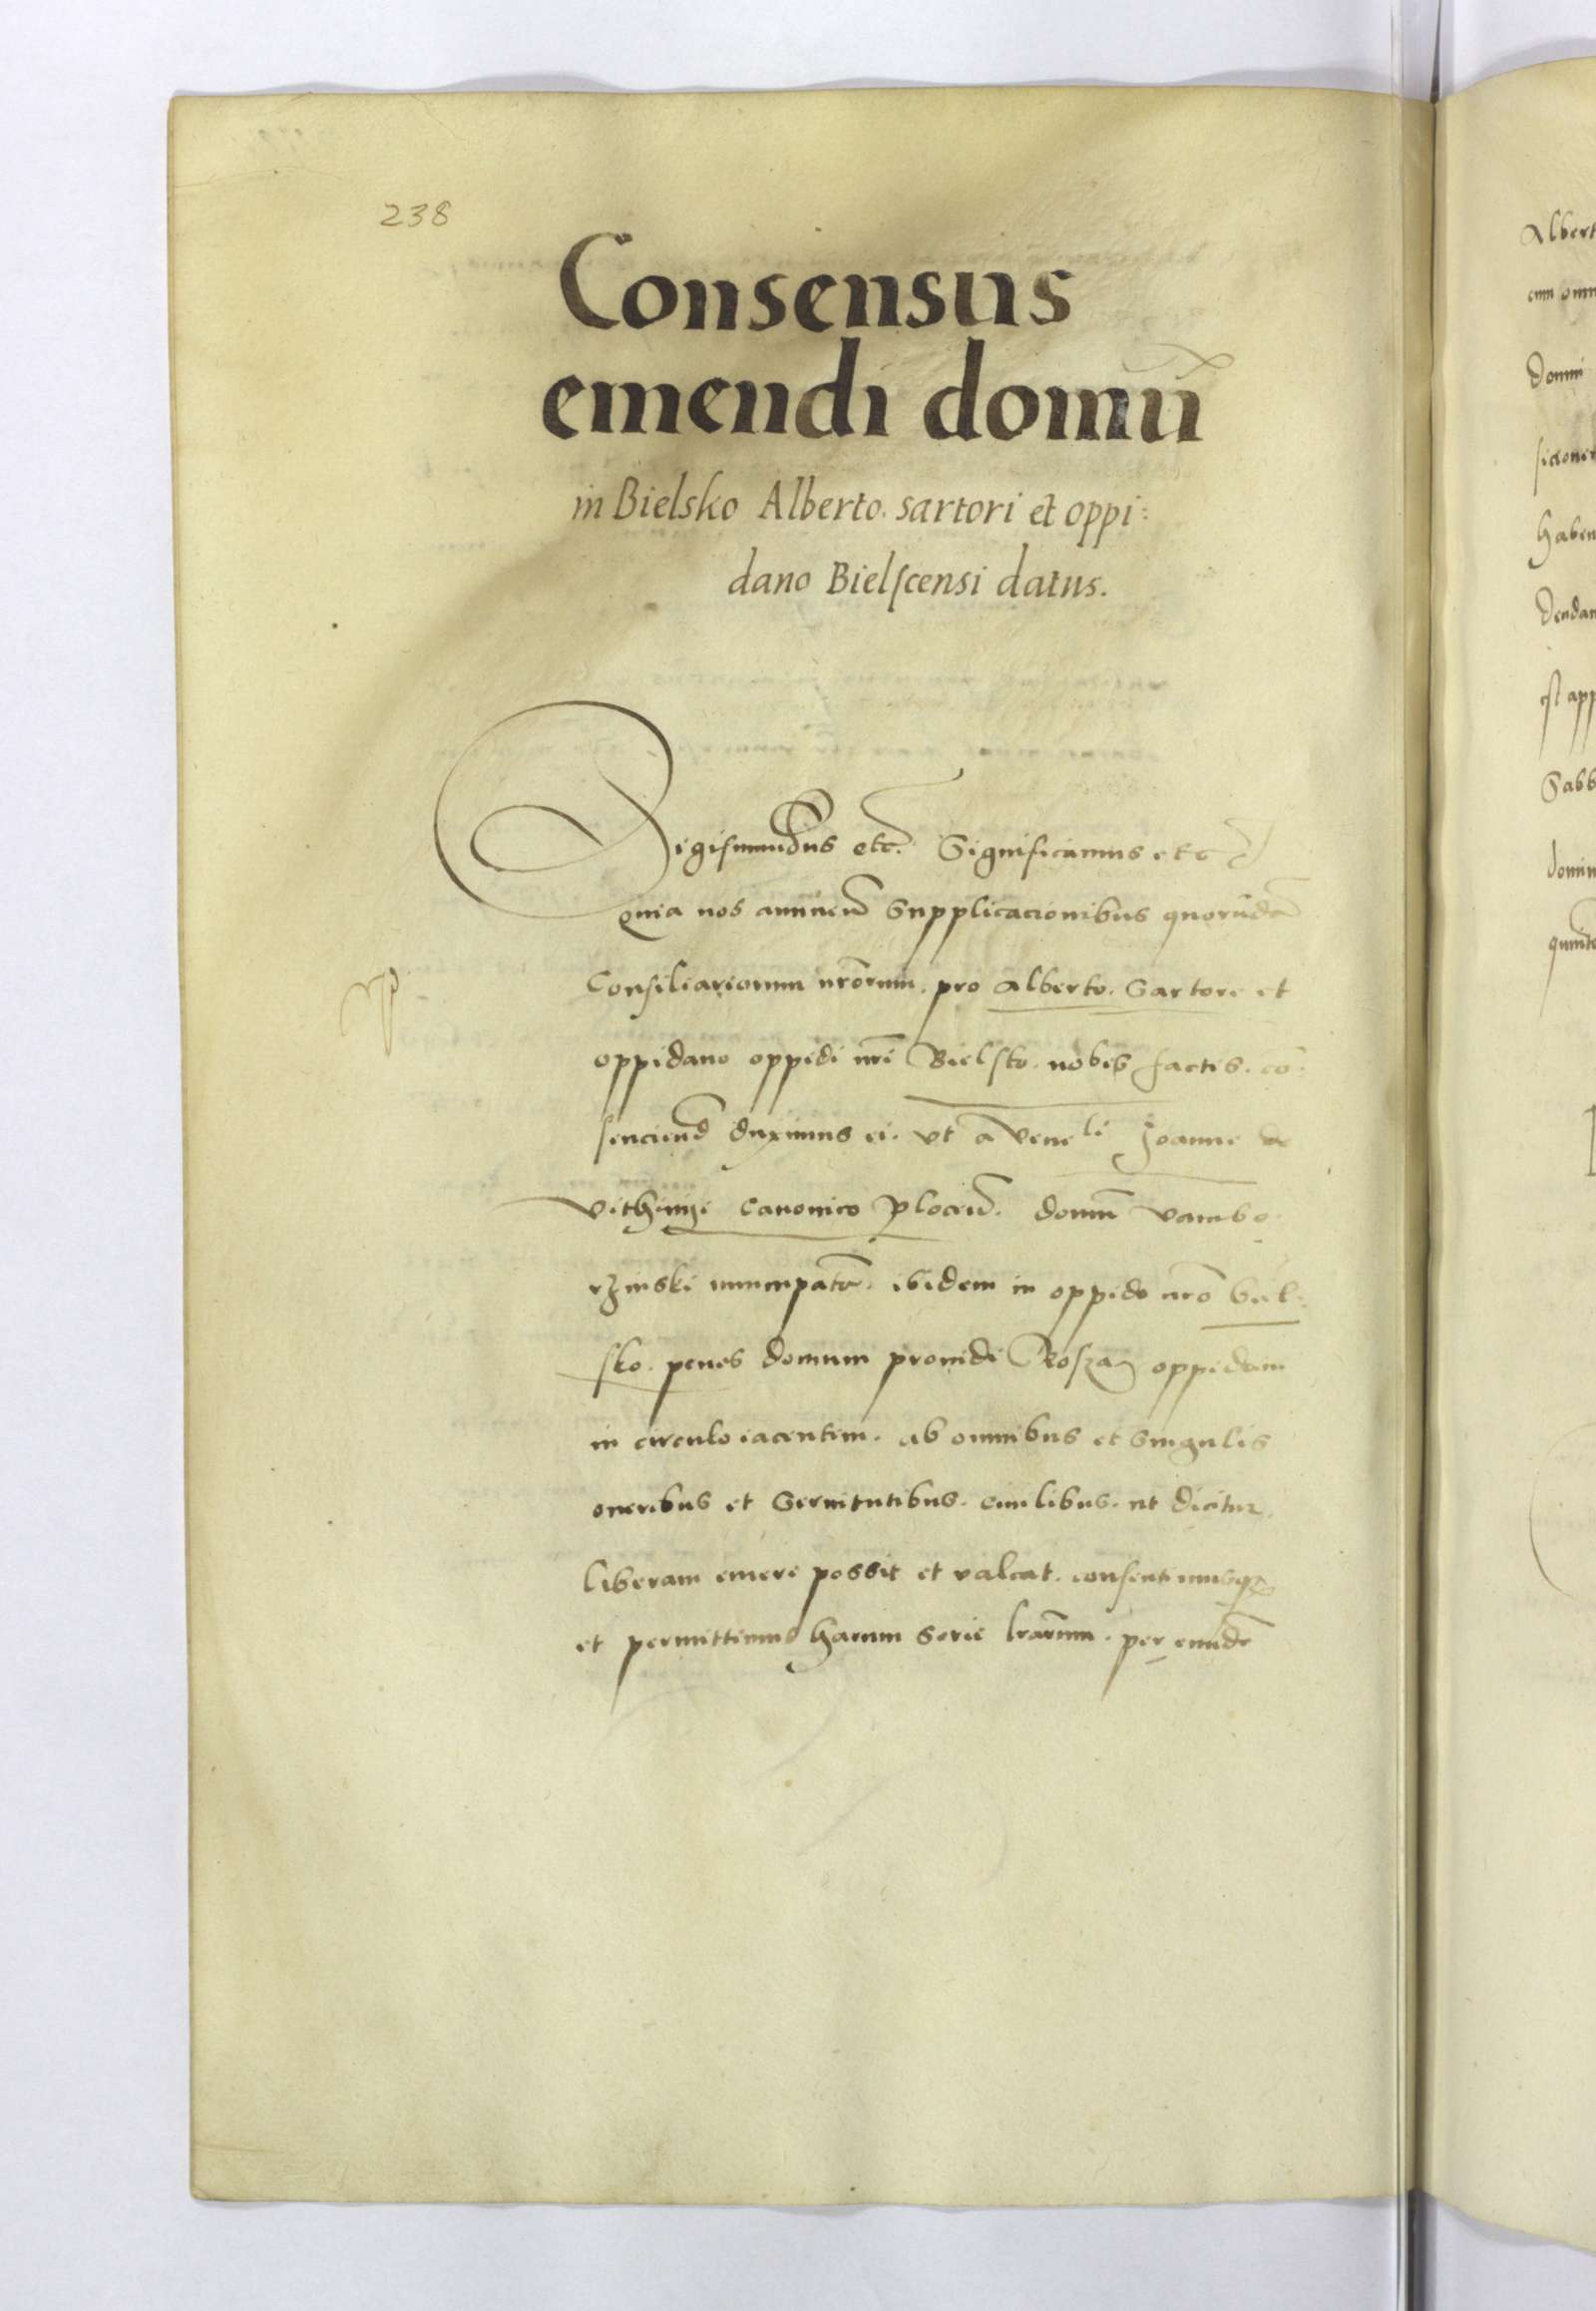 238
Consensus
emendi domū
in Bielsko Alberto. sartori et oppi:
dano Bielscensi datus.
Sigismundus etc. Significamus etc
quia nos annuen̄ Supplicacionibus quorūdā
Consiliariorum nr̄orum. pro Alberto. Sartore et
oppidano oppidi nr̄i Bielsko. nobis factis. co
senciend̄ duximus ei. vt a veneli Joanne de
canonico plocen̄. domū vambo
rzinski nuncupatā. ibidem in oppido nr̄o biel:
sko. penes domum prouidi oppidani
in circulo iacentem. ab omnibus et singulis
oneribus et Seruitutibus. ciuilibus. ut dicitur
liberam emere possit et valeat. consentimusq
et permittimus harum serie lrārum. per eundē
Albert
cum omn
Domin
haben
Dendam
est app
Sabb
domin